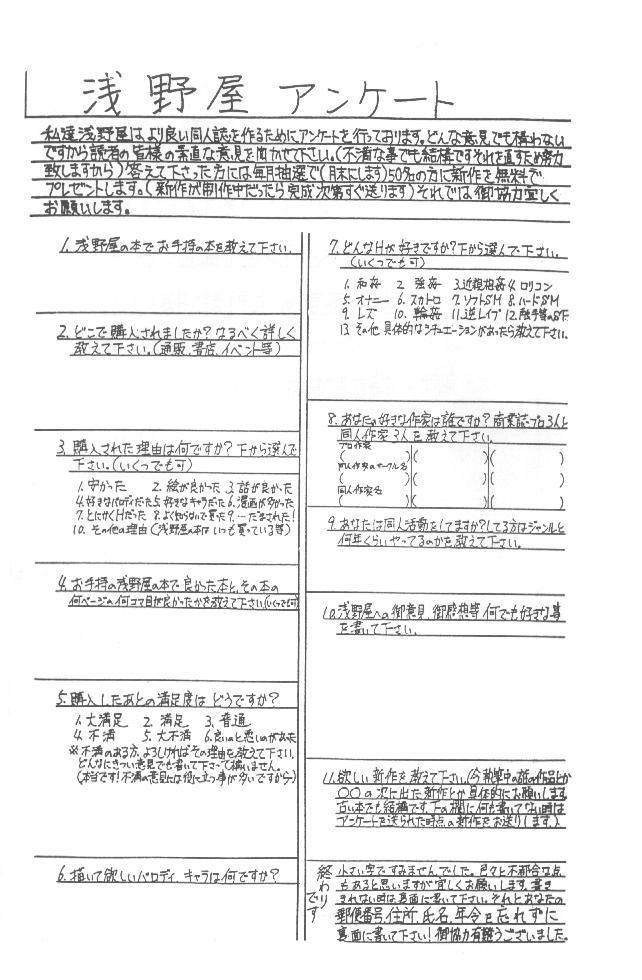 浅野屋 アンケート
私達浅野屋はより良い同人誌を作るためにアンケートを行っております。どんな意見でも構わない
ですから読者の皆様の素直な意見を聞かせて下さい。(不満な事でも結構ですそれを直すため努力
致しますから)答えて下さった方には毎月抽選で(月末にします)50名の方に新作を無料で
プレゼントします。(新作が制作中だったら完成次第すぐ送ります)それでは御協力宜しく
お願いします。
1.浅野屋の本でお手持の本を教えて下さい。
2.どこで購入されましたか?なるべく詳しく
教えて下さい。(通販、書店、イベント等)
3.購入された理由は何ですか?下から選んで
下さい。(いくつでも可)
1.安かった 2.絵が良かった 3.話が良かった
4.好きなパロディだった 5.好きなキャラだった 6.漫画が多かった
7.とにかくHだった 8.よく知らないで買った 9.…だまされた!
10.その他の理由(浅野屋の本はいつも買っている等)
4.お手持の浅野屋の本で良かった本と、その本の
何ページの何コマ目が良かったかを教えて下さい(いくつでも可)
5.購入したあとの満足度はどうですか?
1.大満足 2.満足 3.普通
4.不満 5.大不満 6.良いのと悪いのがあった
※不満のある方、よろしければその理由を教えて下さい、
どんなにきつい意見でも書いて下さって構いません。
(本当です!不満の意見には役に立つ事が多いですから)
6.描いて欲しいパロディ、キャラは何ですか?
7.どんなHが好きですか?下から選んで下さい。
(いくつでも可)
1.和姦 2.強姦 3.近親相姦 4.ロリコン
5.オナニー 6.スカトロ 7.ソフトSM 8.ハードSM
9.レズ 10.輪姦 11.逆レイプ 12.触手等のSF
13.その他 具体的なシチュエーションがあったら教えて下さい。
8.あなたの好きな作家は誰ですか?商業誌・プロ3人と
同人作家3人を教えて下さい。
プロ作家
( )( )( )
同人作家のサークル名
( )( )( )
同人作家名
( )( )( )
9.あなたは同人活動をしてますか?してる方はジャンルと
何年くらいやってるのかを教えて下さい。
10.浅野屋への御意見、御感想等何でも好きな事
を書いて下さい。
11.欲しい新作を教えて下さい。(今執筆中の の作品とか
〇〇の次に出た新作とか具体的にお願いします
古い本でも結構です、下の欄に何も書いてない時は
アンケートを送られた時点の新作をお送りします。)
終わりです
小さい字ですみませんでした。色々と不都合な点
もあると思いますが宜しくお願いします。書き
きれない時は裏面に書いて下さい。それとあなたの
郵便番号、住所、氏名、年令を忘れずに
裏面に書いて下さい!御協力有難うございました。